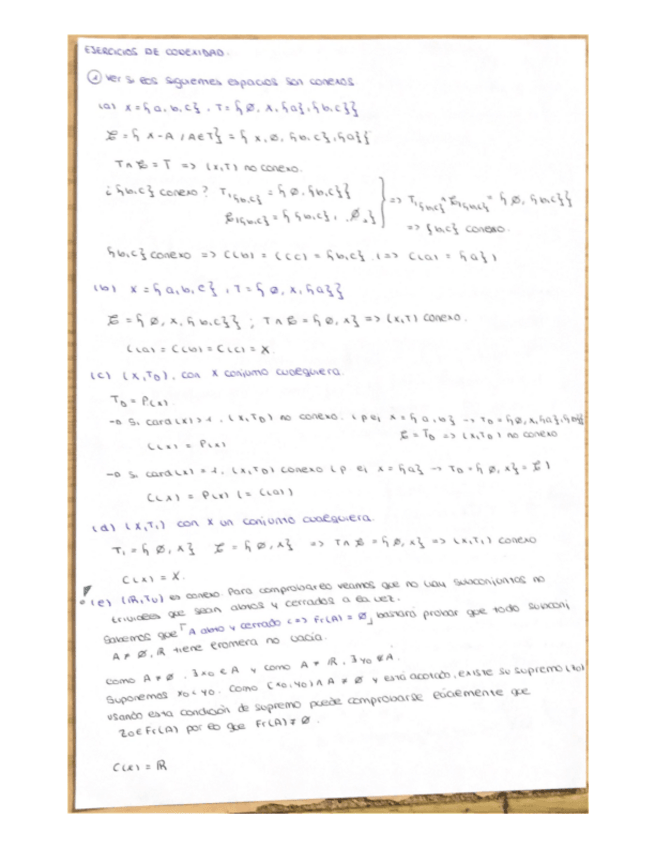 EJERCICIOS DE CONEXIDAD.
① Ver si los siguientes espacios son conexos
(a) X = {a, b, c}, T = {∅, X, {a}, {b, c}}
𝒞 = {X-A / A∈T} = {X, ∅, {b, c}, {a}}
T ∩ 𝒞 = T => (X, T) no conexo.
¿{b, c} conexo? T|{b,c} = {∅, {b, c}}
𝒞|{b,c} = {{b, c}, ∅} => T|{b,c} ∩ 𝒞|{b,c} = {∅, {b, c}}
=> {b, c} conexo.
{b, c} conexo => C(b) = C(c) = {b, c}. (=> C(a) = {a})
(b) X = {a, b, c}, T = {∅, X, {a}}
𝒞 = {∅, X, {b, c}}; T ∩ 𝒞 = {∅, X} => (X, T) conexo.
C(a) = C(b) = C(c) = X.
(c) (X, T_D), con X conjunto cualquiera.
T_D = P(X).
→ Si card(X) > 1, (X, T_D) no conexo. (p ej X = {a, b} → T_D = {∅, X, {a}, {b}}
𝒞 = T_D => (X, T_D) no conexo
C(x) = P(x)
→ Si card(X) = 1, (X, T_D) conexo (p ej X = {a} → T_D = {∅, X} = 𝒞)
C(x) = P(x) (= C(a))
(d) (X, T_I) con X un conjunto cualquiera.
T_I = {∅, X} 𝒞 = {∅, X} => T ∩ 𝒞 = {∅, X} => (X, T_I) conexo
C(x) = X.
(e) (ℝ, T_U) es conexo. Para comprobarlo veamos que no hay subconjuntos no
triviales que sean abiertos y cerrados a la vez.
Sabemos que 「A abto y cerrado <=> Fr(A) = ∅」 bastará probar que todo subconj
A ≠ ∅, ℝ tiene frontera no vacía.
Como A ≠ ∅, ∃ x₀ ∈ A y como A ≠ ℝ, ∃ y₀ ∉ A.
Suponemos x₀ < y₀. Como [x₀, y₀) ∩ A ≠ ∅ y está acotado, existe su supremo (z₀)
usando esta condición de supremo puede comprobarse fácilmente que
z₀ ∈ Fr(A) por lo que Fr(A) ≠ ∅.
C(x) = ℝ